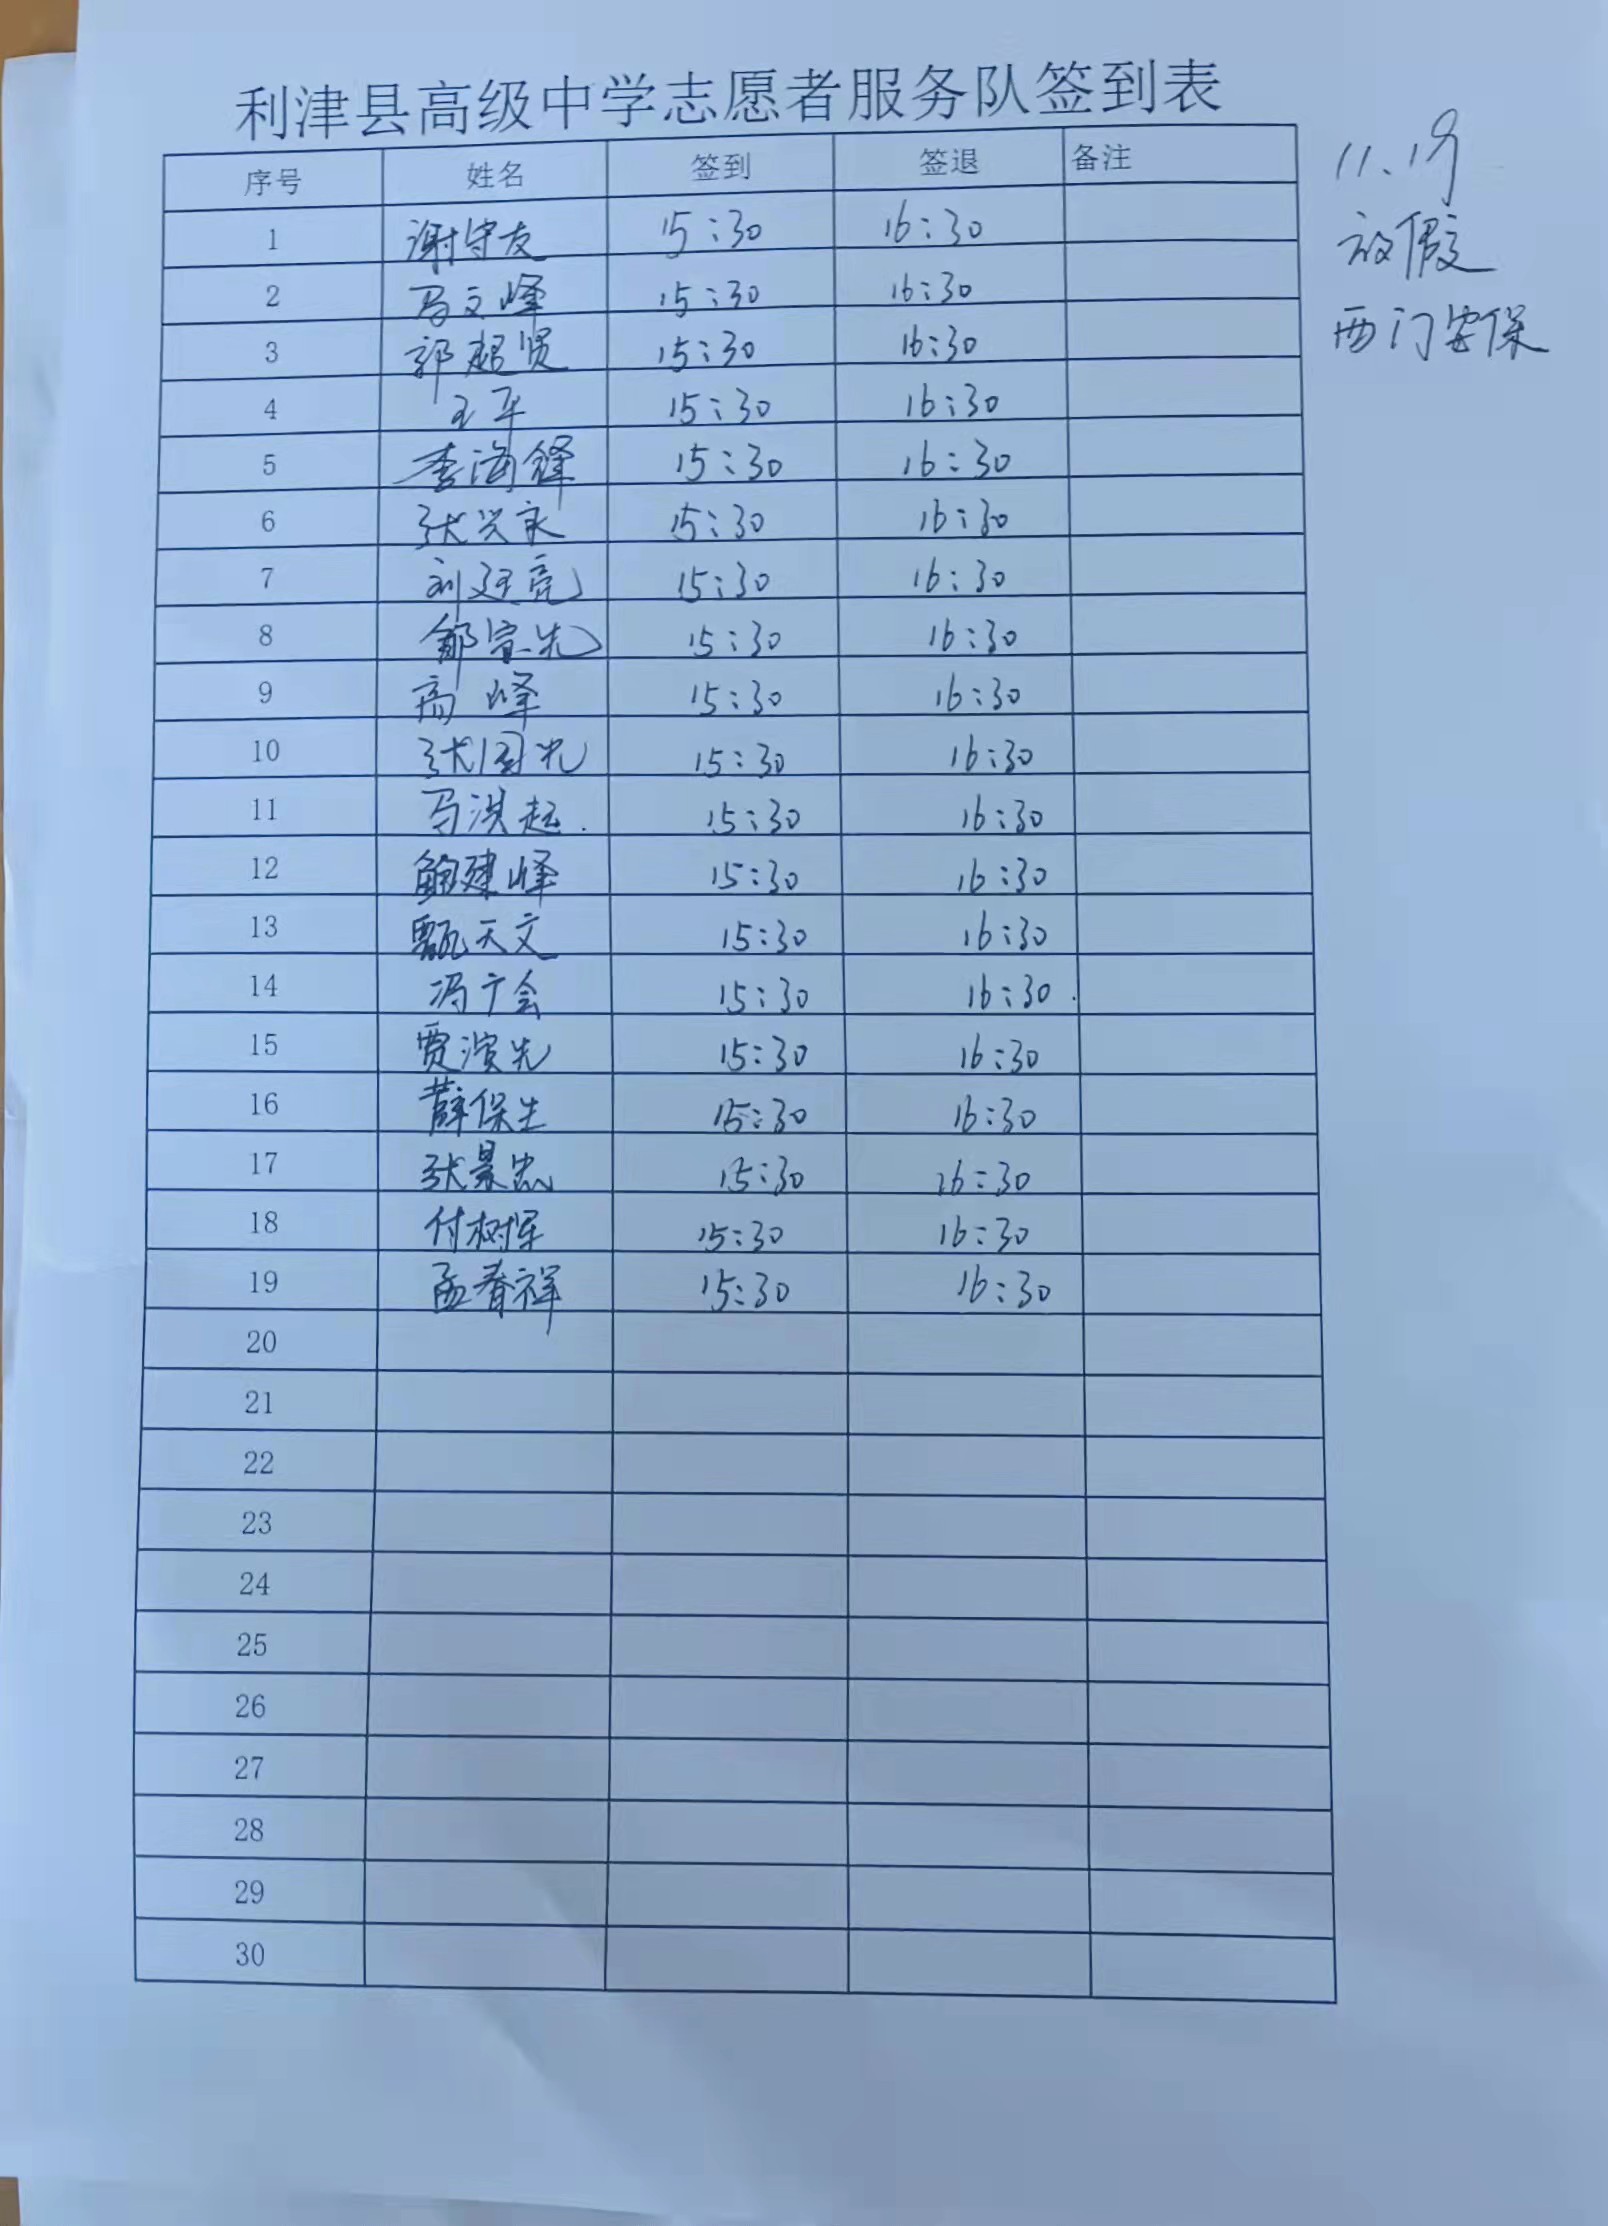 利津县高级中学志愿者服务队签到表
11.19
放假
西门安保
序号 姓名 签到 签退 备注
1 谢守友 15:30 16:30
2 马文峰 15:30 16:30
3 郭超贤 15:30 16:30
4 王平 15:30 16:30
5 李海锋 15:30 16:30
6 张兴永 15:30 16:30
7 刘廷亮 15:30 16:30
8 15:30 16:30
9 高峰 15:30 16:30
10 张国光 15:30 16:30
11 马洪起 15:30 16:30
12 鲍建峰 15:30 16:30
13 甄天文 15:30 16:30
14 冯广会 15:30 16:30
15 贾滨先 15:30 16:30
16 薛保生 15:30 16:30
17 张景忠 15:30 16:30
18 付树军 15:30 16:30
19 孟春祥 15:30 16:30
20
21
22
23
24
25
26
27
28
29
30